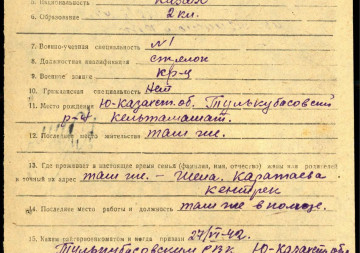 5. Национальность казах
6. Образование 2 кл.
7. Военно-учетная специальность №1
8. Должностная квалификация стрелок
9. Военное звание кр-ц
10. Гражданская специальность Нет
11. Место рождения Ю-казахст. об. Тулькубасовский
р-н.
12. Последнее место жительства там же.
13. Где проживает в настоящее время семья (фамилия, имя, отчество) жены или родителей
и точный их адрес там же. - Жена Каратаева
14. Последнее место работы и должность там же в колхозе.
15. Каким райвоенкоматом и когда призван 27/VI-42
Тулькубасовским РВК Ю-Казахст. обл.